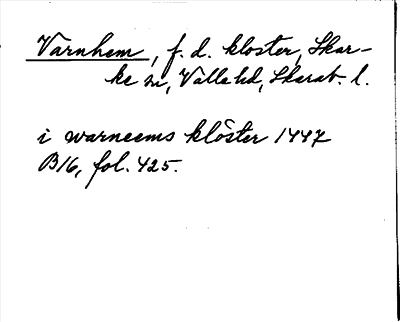 Varnhem, f. d. kloster, Skar-
ke sn, Valle hd, Skarab. l.
i warneems klöster 1447
B16, fol. 425.